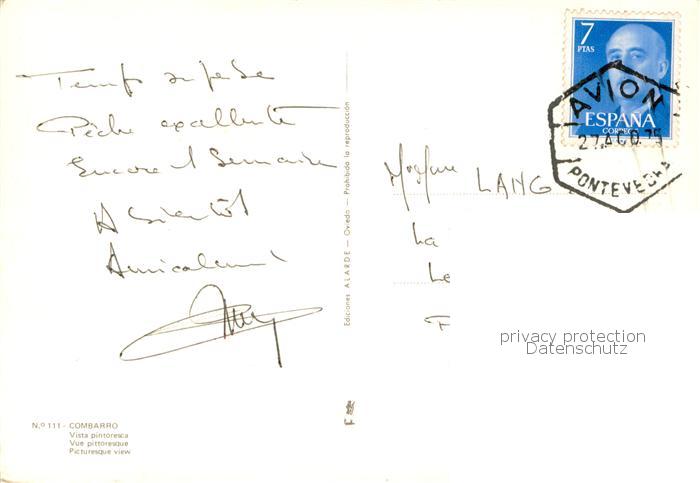 Temps superbe
Pêche excellente
Encore 1 Semaine
A bientôt
Amicalement
Nº 111 - COMBARRO
Vista pintoresca
Vue pittoresque
Picturesque view
Ediciones ALARDE — Oviedo — Prohibida la reproducción
7
PTAS
ESPAÑA
CORREOS
AVION
27 AGO. 75
PONTEVEDRA
LANG
La
Le
F
privacy protection
Datenschutz